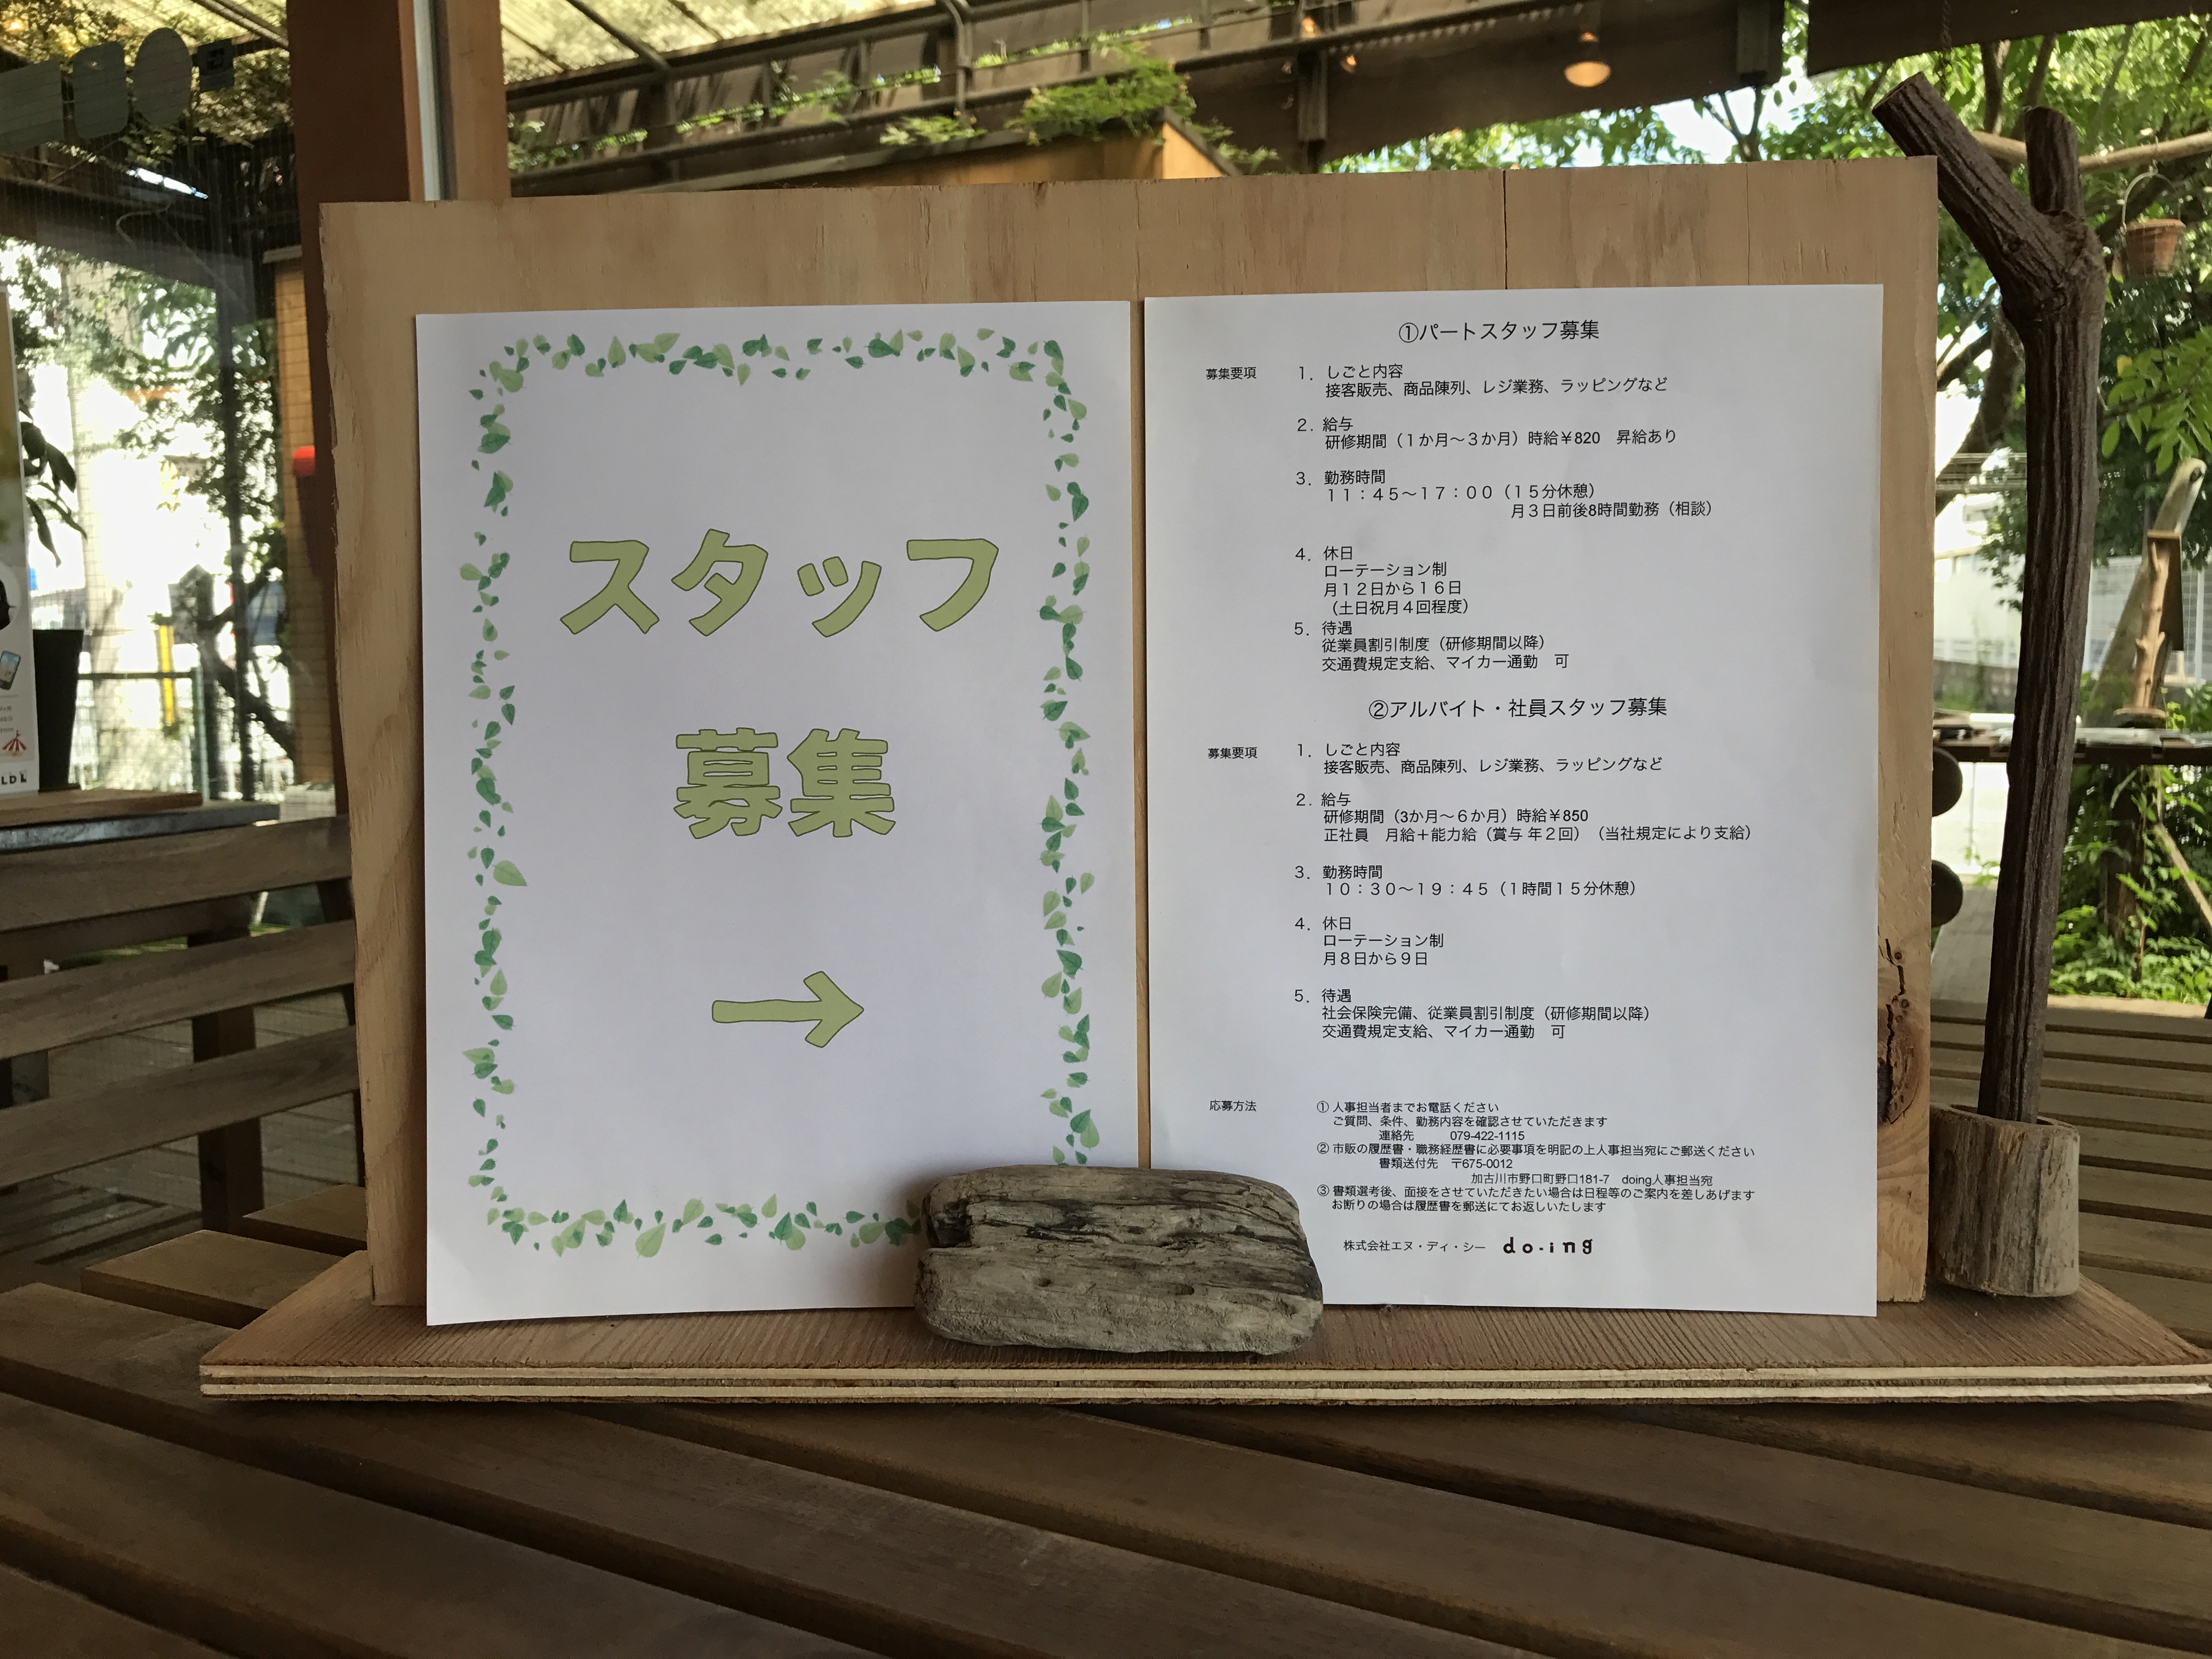 スタッフ
募集
→
①パートスタッフ募集
募集要項
1．しごと内容
接客販売、商品陳列、レジ業務、ラッピングなど
2．給与
研修期間（１か月～３か月）時給¥820　昇給あり
3．勤務時間
１１：４５～１７：００（１５分休憩）
月３日前後8時間勤務（相談）
4．休日
ローテーション制
月１２日から１６日
（土日祝月４回程度）
5．待遇
従業員割引制度（研修期間以降）
交通費規定支給、マイカー通勤　可
②アルバイト・社員スタッフ募集
募集要項
1．しごと内容
接客販売、商品陳列、レジ業務、ラッピングなど
2．給与
研修期間（3か月～６か月）時給¥850
正社員　月給＋能力給（賞与 年２回）（当社規定により支給）
3．勤務時間
１０：３０～１９：４５（１時間１５分休憩）
4．休日
ローテーション制
月８日から９日
5．待遇
社会保険完備、従業員割引制度（研修期間以降）
交通費規定支給、マイカー通勤　可
応募方法
① 人事担当者までお電話ください
ご質問、条件、勤務内容を確認させていただきます
連絡先　079-422-1115
② 市販の履歴書・職務経歴書に必要事項を明記の上人事担当宛にご郵送ください
書類送付先　〒675-0012
加古川市野口町野口181-7　doing人事担当宛
③ 書類選考後、面接をさせていただきたい場合は日程等のご案内を差しあげます
お断りの場合は履歴書を郵送にてお返しいたします
株式会社エヌ・ディ・シー　do-ing